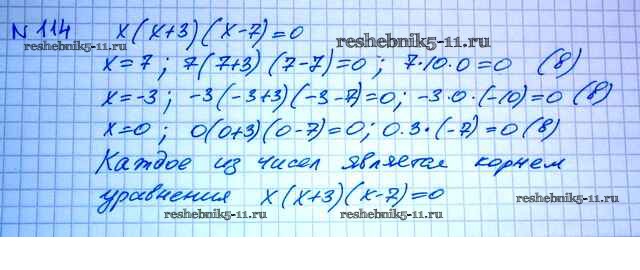 № 114 x(x+3)(x-7)=0
reshebnik5-11.ru reshebnik5-11.ru
x=7; 7(7+3)(7-7)=0; 7·10·0=0 (В)
x=-3; -3(-3+3)(-3-7)=0; -3·0·(-10)=0 (В)
reshebnik5-11.ru reshebnik5-11.ru
x=0; 0(0+3)(0-7)=0; 0·3·(-7)=0 (В)
Каждое из чисел является корнем
уравнения x(x+3)(x-7)=0
reshebnik5-11.ru reshebnik5-11.ru
reshebnik5-11.ru reshebnik5-11.ru